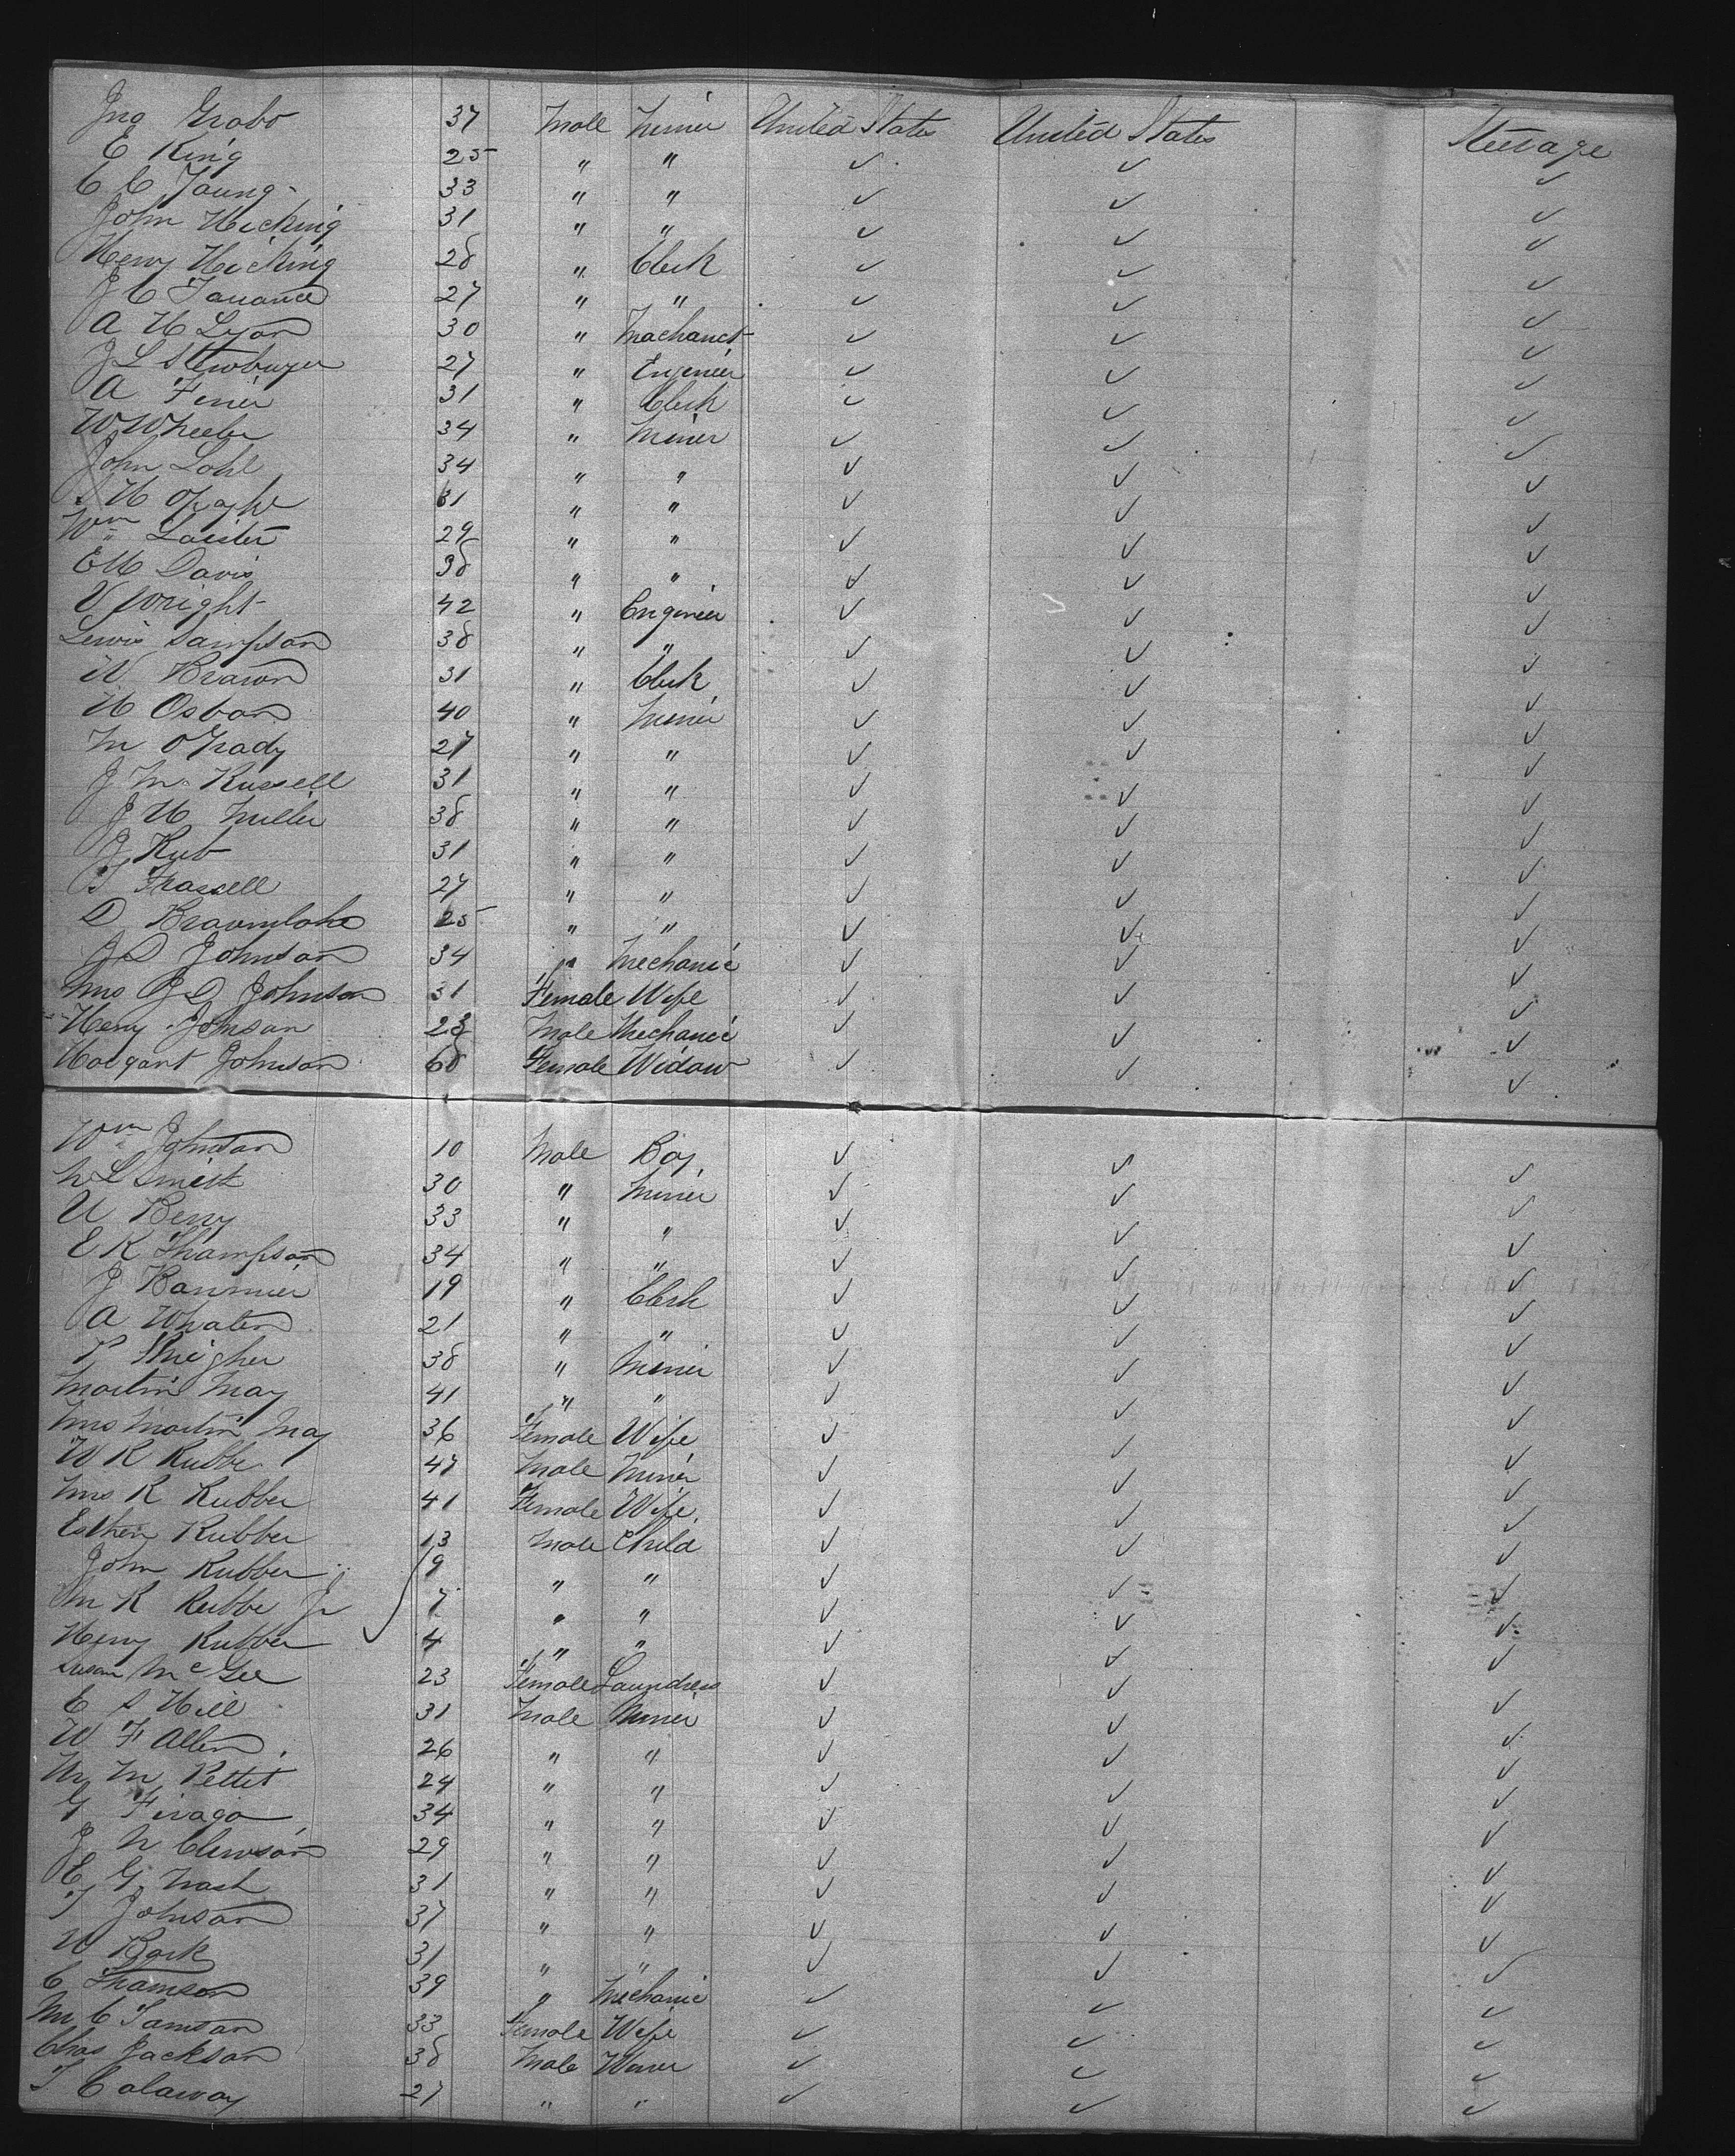 Jno Grabo 37 Male Miner United States United States Steerage
E King 25 " " ✓ ✓ ✓
E C Young 33 " " ✓ ✓ ✓
John Hicking 31 " " ✓ ✓ ✓
Henry Hicking 28 " Clerk ✓ ✓ ✓
J C Tarrance 27 " " ✓ ✓ ✓
A H Lyon 30 " Machanict ✓ ✓ ✓
J L 27 " Engineer ✓ ✓ ✓
A Ferrier 31 " Clerk ✓ ✓ ✓
W Wheeler 34 " Miner ✓ ✓ ✓
John Lohl 34 " " ✓ ✓ ✓
S H 31 " " ✓ ✓ ✓
Wm 29 " " ✓ ✓ ✓
E M Davis 38 " " ✓ ✓ ✓
V Wright 42 " Engineer ✓ ✓ ✓
Lewis Sampson 38 " " ✓ ✓ ✓
W Brawn 31 " Clerk ✓ ✓ ✓
H Osbon 40 " Miner ✓ ✓ ✓
M OGrady 27 " " ✓ ✓ ✓
J M Russell 31 " " ✓ ✓ ✓
J H Miller 38 " " ✓ ✓ ✓
J Kub 31 " " ✓ ✓ ✓
T Frassell 27 " " ✓ ✓ ✓
D 25 " " ✓ ✓ ✓
J D Johnson 34 " Mechanic ✓ ✓ ✓
Mrs J D Johnson 31 Female Wife ✓ ✓ ✓
Henry Johnson 23 Male Mechanic ✓ ✓ ✓
Johnson 68 Female Widow ✓ ✓ ✓
Wm Johnson 10 Male Boy ✓ ✓ ✓
N L Smith 30 " Miner ✓ ✓ ✓
U Berry 33 " " ✓ ✓ ✓
E K Thampson 34 " " ✓ ✓ ✓
J Bannier 19 " Clerk ✓ ✓ ✓
A Whalen 21 " " ✓ ✓ ✓
P 38 " Miner ✓ ✓ ✓
Martin May 41 " " ✓ ✓ ✓
Mrs Martin May 36 Female Wife ✓ ✓ ✓
W R Rubber 47 Male Miner ✓ ✓ ✓
Mrs R Rubber 41 Female Wife ✓ ✓ ✓
Esther Rubber 13 Male Child ✓ ✓ ✓
John Rubber 9 " " ✓ ✓ ✓
R Rubber Jr 7 " " ✓ ✓ ✓
Henry Rubber 4 " " ✓ ✓ ✓
Susan McGee 23 Female Laundress ✓ ✓ ✓
E S Hill 31 Male Miner ✓ ✓ ✓
W F Allen 26 " " ✓ ✓ ✓
M Pettet 24 " " ✓ ✓ ✓
G Firago 34 " " ✓ ✓ ✓
J N Clewson 29 " " ✓ ✓ ✓
E G Nash 31 " " ✓ ✓ ✓
T Johnson 37 " " ✓ ✓ ✓
W Bork 31 " " ✓ ✓ ✓
C Thamson 39 " Mechanic ✓ ✓ ✓
Mrs C Tamson 33 Female Wife ✓ ✓ ✓
Chas Jackson 38 Male ✓ ✓ ✓
T Calaway 27 " " ✓ ✓ ✓